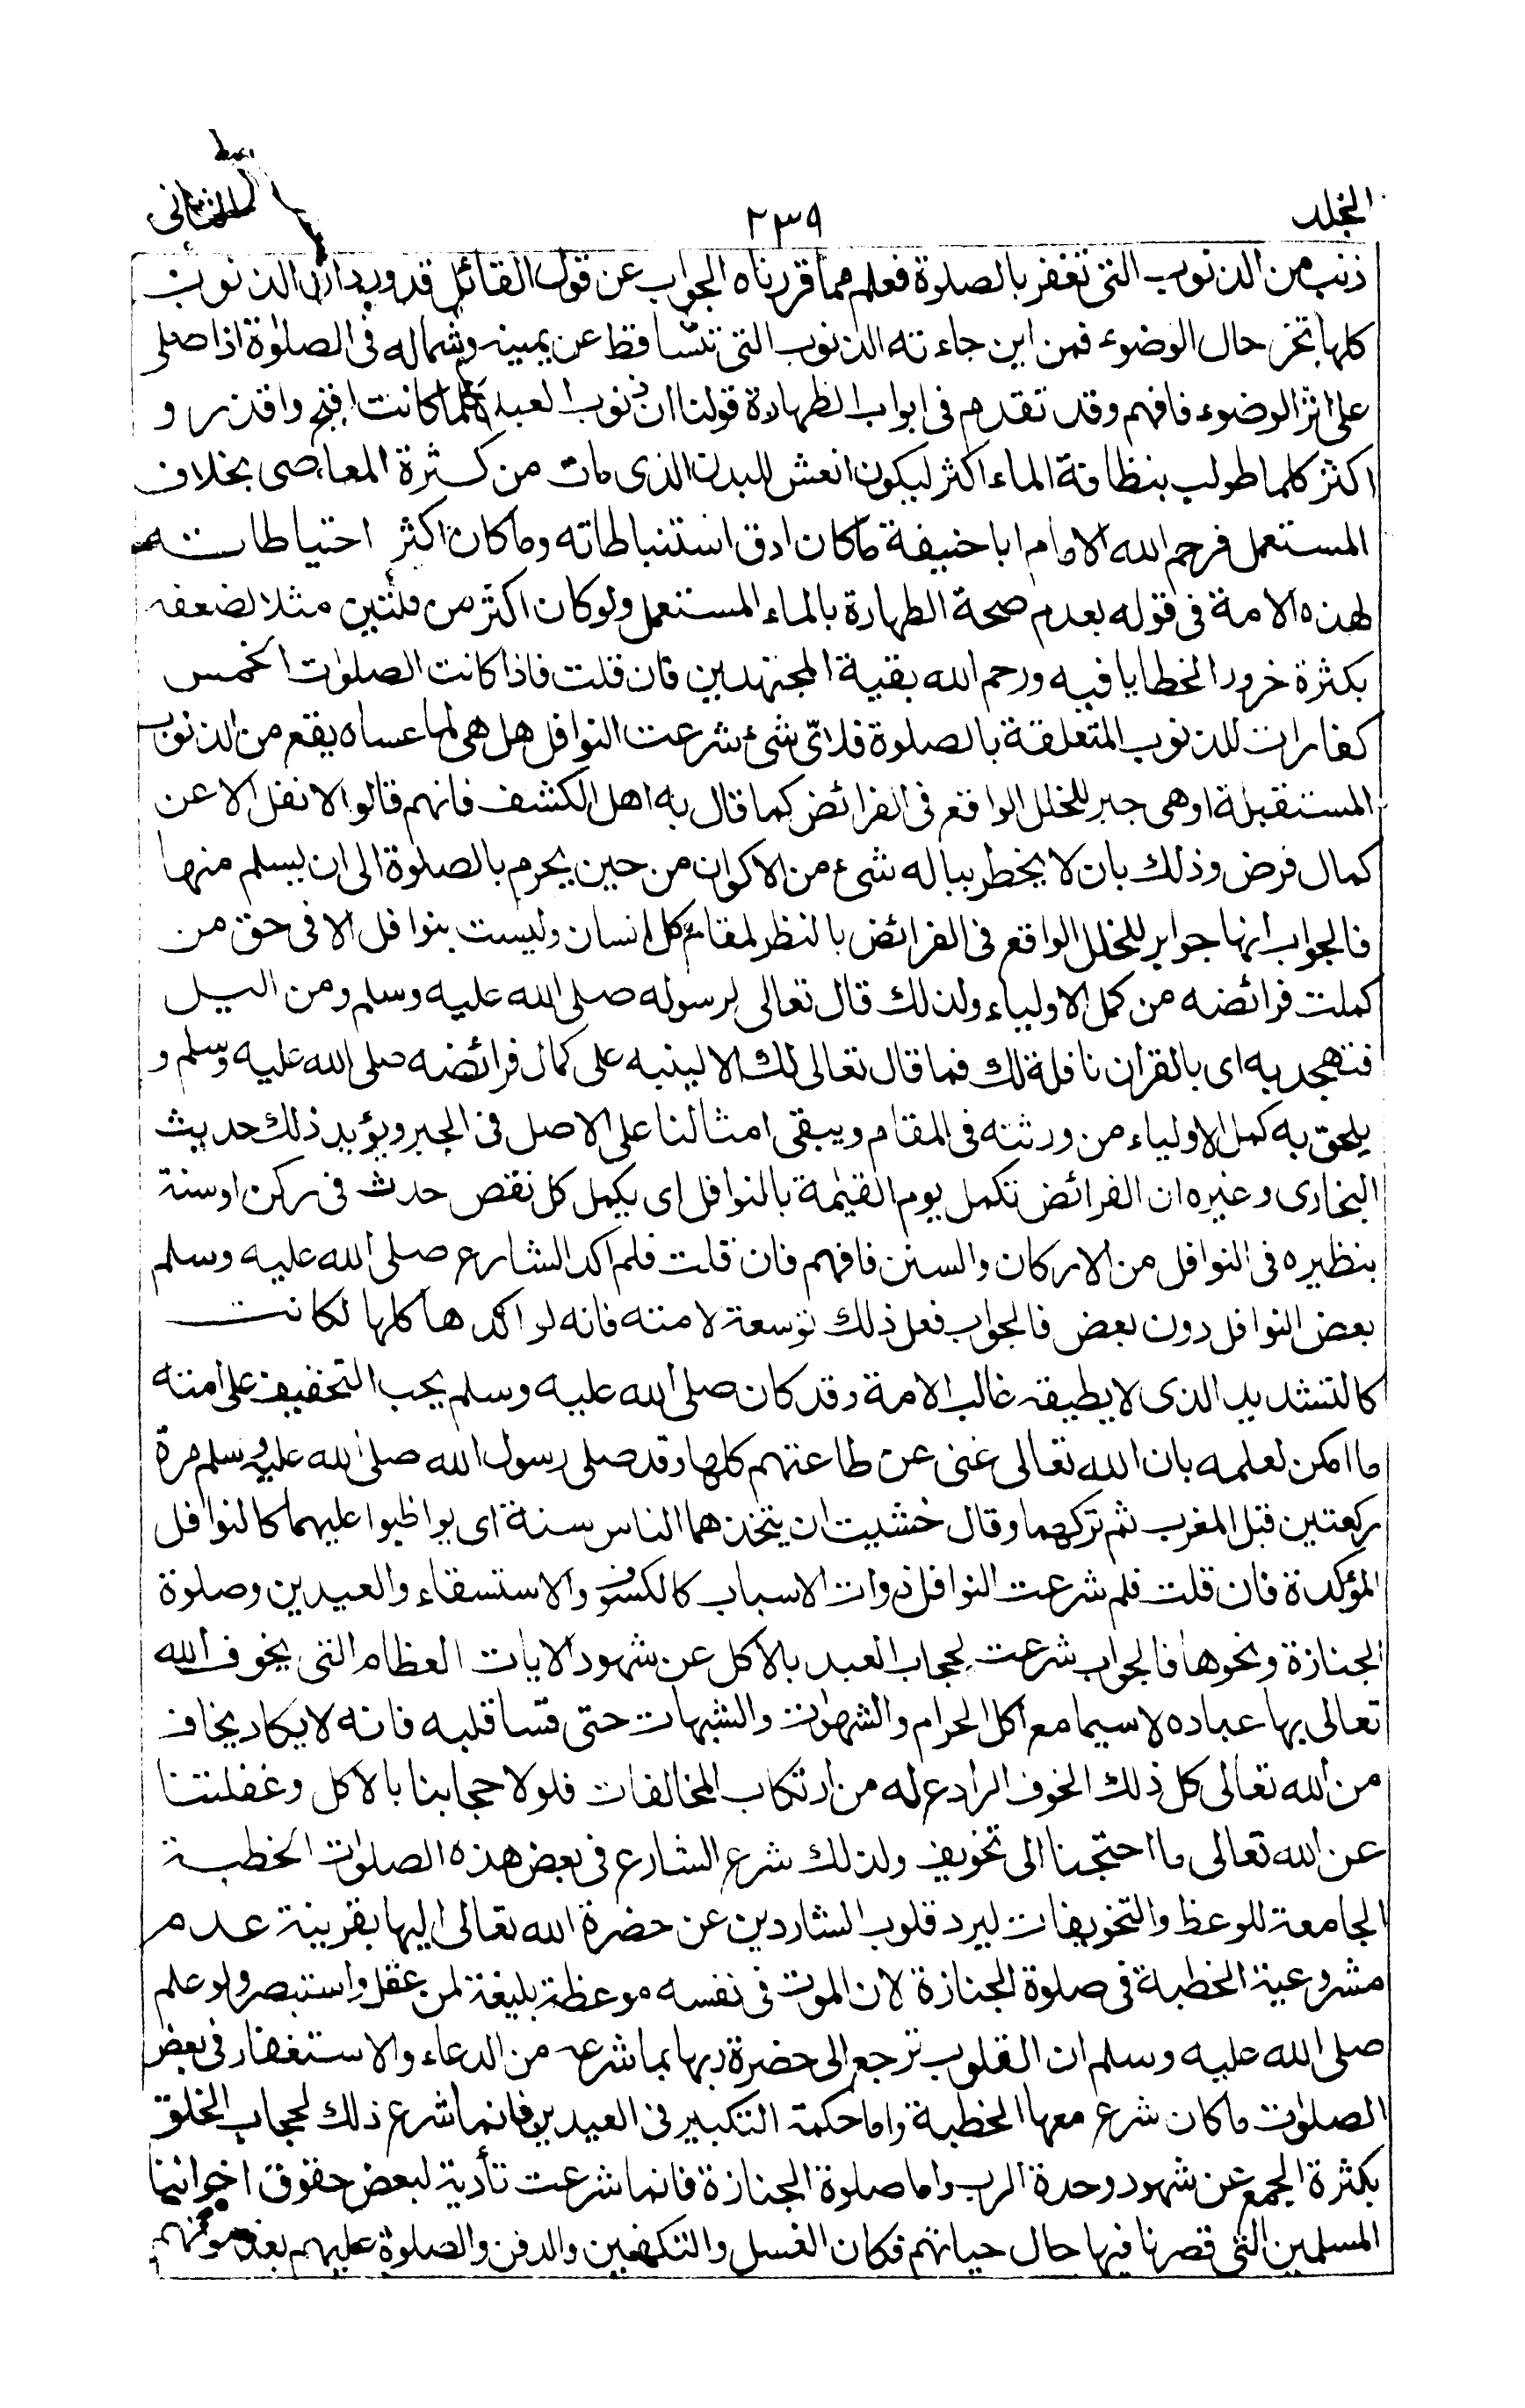 المجلد ٢٣٩ الثانی
ذنب من الذنوب التی تغفر بالصلوة فعلم مما قررناه الجواب عن قول القائل قد ورد ان الذنوب
كلها تخر حال الوضوء فمن این جاءته الذنوب التی تتساقط عن یمینه وشماله فی الصلوٰة اذا صلی
علی اثر الوضوء فافهم وقد تقدم فی ابواب الطهارة قولنا ان ذنوب العبد كلما كانت اقبح واقذر و
اكثر كلما طولب بنظافة الماء اكثر لیكون انعش للبدن الذی مات من كثرة المعاصی بخلاف
المستعمل فرحم الله الامام ابا حنیفة ما كان ادق استنباطاته وما كان اكثر احتیاطاته
لهذه الامة فی قوله بعدم صحة الطهارة بالماء المستعمل ولو كان اكثر من قلتین مثلا لضعفه
بكثرة خرور الخطایا فیه ورحم الله بقیة المجتهدین فان قلت فاذا كانت الصلوات الخمس
كفارات للذنوب المتعلقة بالصلوة فلای شیء شرعت النوافل هل هی لما عساه یقع من الذنوب
المستقبلة او هی جبر للخلل الواقع فی الفرائض كما قال به اهل الكشف فانهم قالوا لا نفل الا عن
كمال فرض وذلك بان لا یخطر بباله شیء من الاكوان من حین یحرم بالصلوة الی ان یسلم منها
فالجواب انها جوابر للخلل الواقع فی الفرائض بالنظر لمقام كل انسان ولیست بنوافل الا فی حق من
كملت فرائضه من كمل الاولیاء ولذلك قال تعالی لرسوله صلی الله علیه وسلم ومن الیل
فتهجد به ای بالقران نافلة لك فما قال تعالی لك الا لینبه علی كمال فرائضه صلی الله علیه وسلم و
یلحق به كمل الاولیاء من ورثته فی المقام ویبقی امثالنا علی الاصل فی الجبر ویؤید ذلك حدیث
البخاری وغیره ان الفرائض تكمل یوم القیٰمة بالنوافل ای یكمل كل نقص حدث فی ركن او سنة
بنظیره فی النوافل من الاركان والسنن فافهم فان قلت فلم اكد الشارع صلی الله علیه وسلم
بعض النوافل دون بعض فالجواب فعل ذلك توسعة لامته فانه لو اكدها كلها لكانت
كالتشدید الذی لا یطیقه غالب الامة وقد كان صلی الله علیه وسلم یحب التخفیف علی امته
ما امكن لعلمه بان الله تعالی غنی عن طاعتهم كلها وقد صلی رسول الله صلی الله علیه وسلم مرة
ركعتین قبل المغرب ثم تركهما وقال خشیت ان یتخذهما الناس سنة ای یواظبوا علیهما كالنوافل
المؤكدة فان قلت فلم شرعت النوافل ذوات الاسباب كالكسوف والاستسقاء والعیدین وصلوة
الجنازة ونحوها فالجواب شرعت لحجاب العبد بالاكل عن شهود الایات العظام التی یخوف الله
تعالی بها عباده لا سیما مع اكل الحرام والشهوات والشبهات حتی قسا قلبه فانه لا یكاد یخاف
من الله تعالی كل ذلك الخوف الرادع له من ارتكاب المخالفات فلولا حجابنا بالاكل وغفلتنا
عن الله تعالی ما احتجنا الی تخویف ولذلك شرع الشارع فی بعض هذه الصلوات الخطبة
الجامعة للوعظ والتخویفات لیرد قلوب الشاردین عن حضرة الله تعالی الیها بقرینة عدم
مشروعیة الخطبة فی صلوة الجنازة لان الموت فی نفسه موعظة بلیغة لمن عقل واستبصر ولو علم
صلی الله علیه وسلم ان القلوب ترجع الی حضرة ربها بما شرعه من الدعاء والاستغفار فی بعض
الصلوات ما كان شرع معها الخطبة واما حكمة التكبیر فی العیدین فانما شرع ذلك لحجاب الخلق
بكثرة الجمع عن شهود وحدة الرب واما صلوة الجنازة فانما شرعت تأدیة لبعض حقوق اخواننا
المسلمین التی قصرنا فیها حال حیاتهم فكان الغسل والتكفین والدفن والصلوة علیهم بعد موتهم